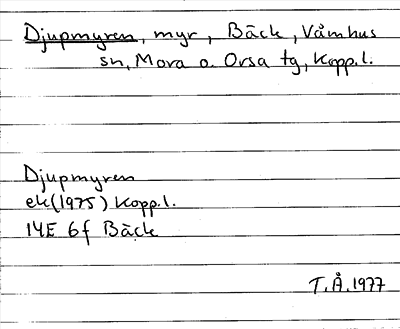 Djupmyren, myr, Bäck, Våmhus
sn, Mora o. Orsa tg, Kopp.l.
Djupmyren
ek(1975) Kopp.l.
14E 6f Bäck
T.Å.1977